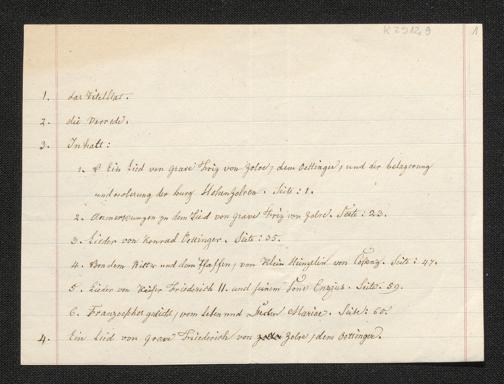 K 2912,9
1
1. das Titelblat.
2. die Vorrede.
3. Inhalt:
1. Ein Lied von Grave Friz von Zolre, dem Oettinger, und der belagerung
und eroberung der burg Hohenzolren. Seite: 1.
2. Anmerkungen zu dem Lied von Grave Friz von Zolre. Seite: 23.
3. Lieder von Konrad Oettinger. Seite: 35.
4. Von dem Ritter und dem Pfaffen, von Klein Heinzelin von Costenz. Seite: 47.
5. Lieder von Keiser Friederich II. und seinem Sone Enzius. Seite: 59.
6. gedicht, vom leben und Mariae. Seite: 65.
4. Ein Lied von Grave Friederich von Zolre, dem Oettinger.